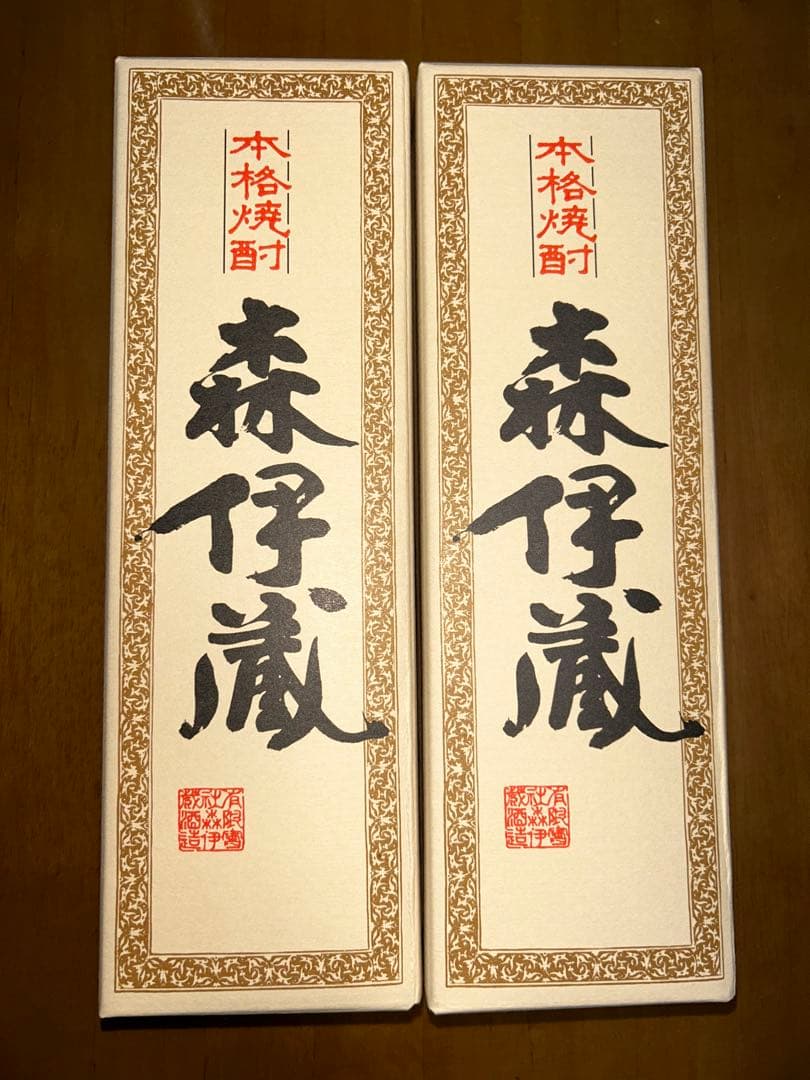 本格焼酎
森伊蔵
有限会社森伊蔵酒造
本格焼酎
森伊蔵
有限会社森伊蔵酒造